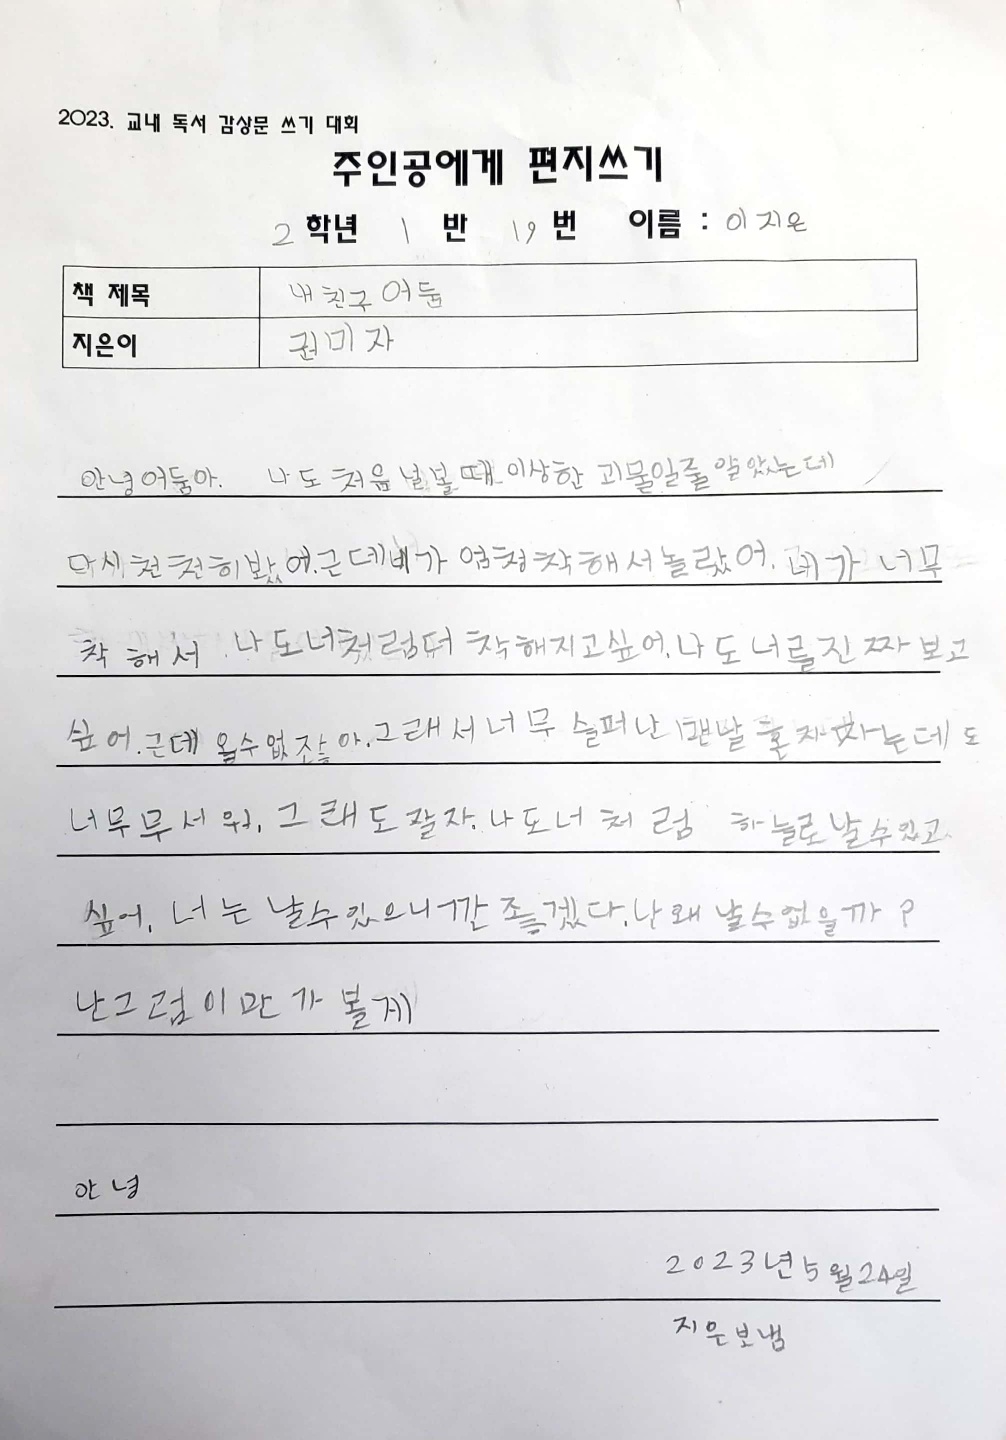 2023. 교내 독서 감상문 쓰기 대회
주인공에게 편지쓰기
2 학년 1 반 19 번 이름 : 이지은
책 제목 내 친구 어둠
지은이 권미자
안녕어둠아. 나도 처음 널볼때 이상한 괴물일줄 알았는데
다시 천천히봤어. 근데네가 엄청착해서놀랐어. 네가 너무
착해서 나도너처럼더 착해지고싶어. 나도너를진짜보고
싶어. 근데 올수없잖아. 그래서너무 슬퍼난 맨날 혼자자는데도
너무무서워. 그래도잘자. 나도너처럼 하늘로날수있고
싶어. 너는 날수있으니깐 좋겠다. 난왜 날수없을까?
난그럼이만가볼게
안녕
2023년5월24일
지은보냄